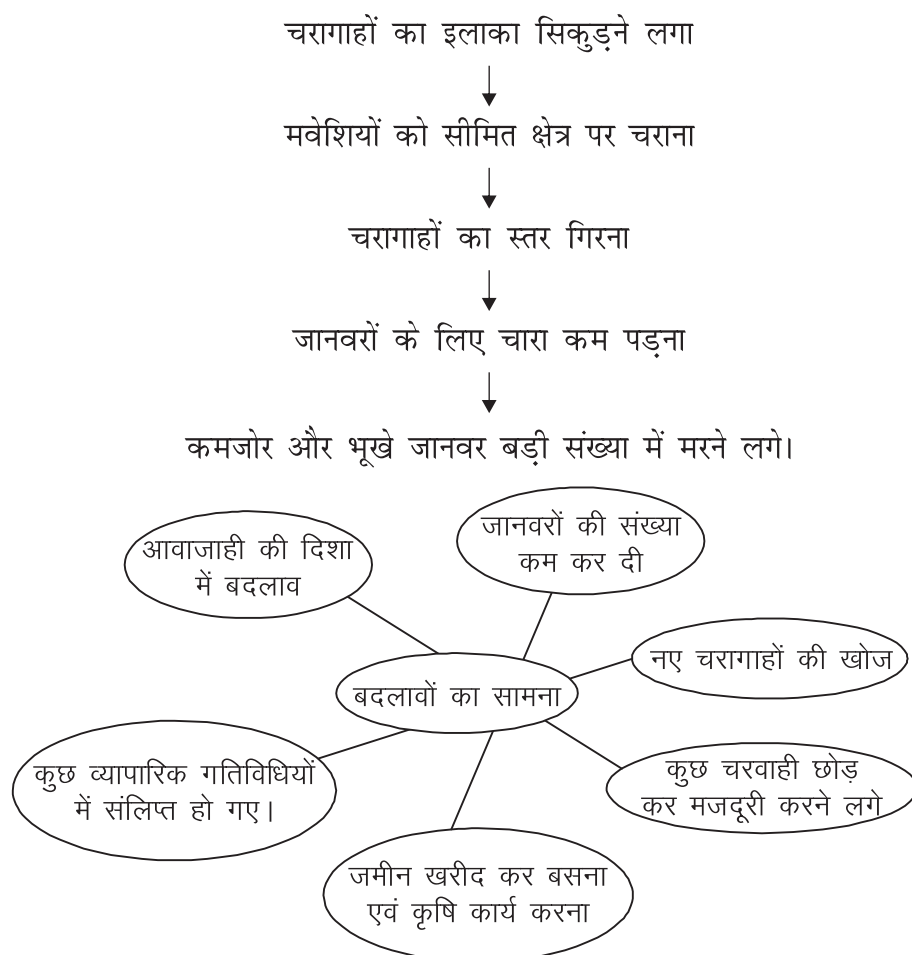 चरागाहों का इलाका सिकुड़ने लगा
मवेशियों को सीमित क्षेत्र पर चराना
चरागाहों का स्तर गिरना
जानवरों के लिए चारा कम पड़ना
कमजोर और भूखे जानवर बड़ी संख्या में मरने लगे।
आवाजाही की दिशा
में बदलाव
जानवरों की संख्या
कम कर दी
नए चरागाहों की खोज
बदलावों का सामना
कुछ व्यापारिक गतिविधियों
में संलिप्त हो गए।
कुछ चरवाही छोड़
कर मजदूरी करने लगे
जमीन खरीद कर बसना
एवं कृषि कार्य करना